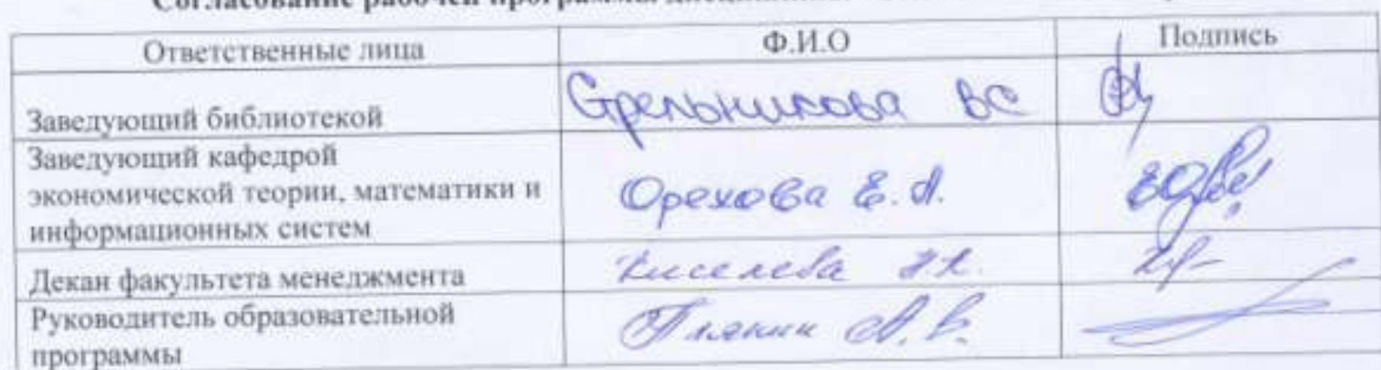 Согласование рабочей программы
Ответственные лица Ф.И.О Подпись
Заведующий библиотекой Стрельникова ВС
Заведующий кафедрой
экономической теории, математики и
информационных систем Орехова Е.А.
Декан факультета менеджмента Киселева
Руководитель образовательной
программы Плякин А.В.